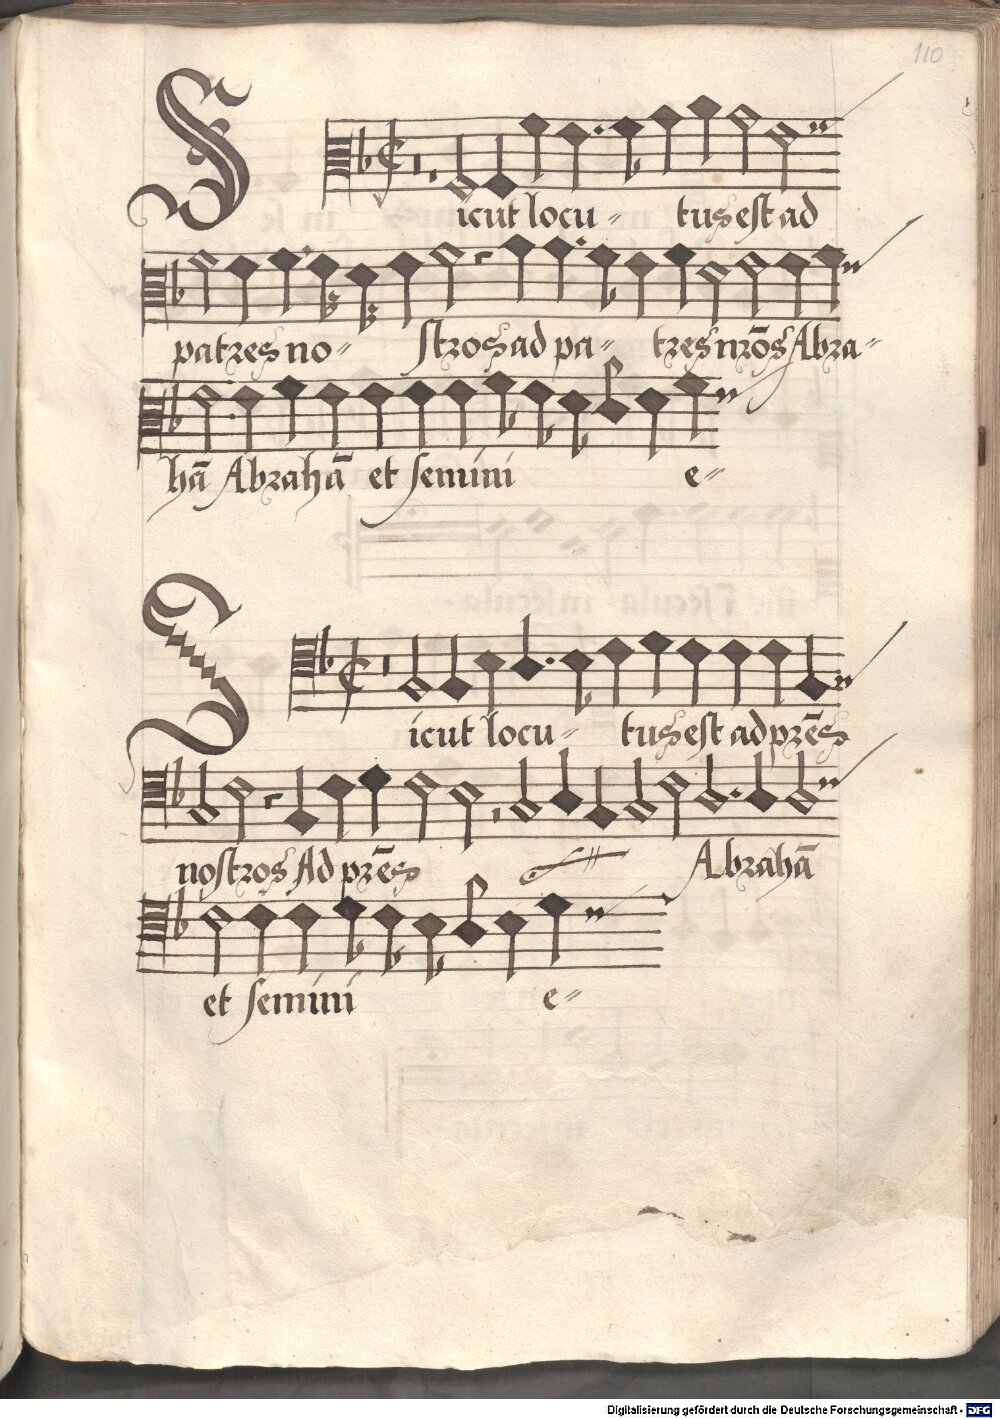 110
Sicut locu- tus est ad
patres no- stros ad pa- tres nrōs Abra-
hā Abrahā et semini e-
Sicut locu- tus est ad prēs
nostros Ad prēs Abrahā
et semini e-
Digitalisierung gefördert durch die Deutsche Forschungsgemeinschaft - DFG